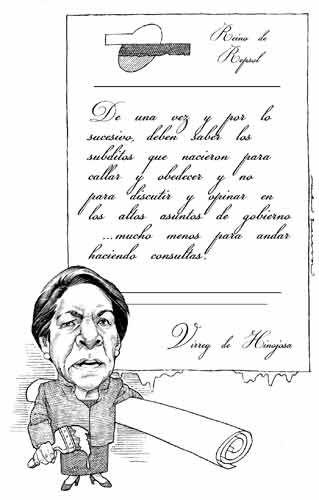 Reino de
Repsol
De una vez y por lo
sucesivo, deben saber los
subditos que nacieron para
callar y obedecer y no
para discutir y opinar en
los altos asuntos de gobierno
...mucho menos para andar
haciendo consultas.
Virrey de Hinojosa